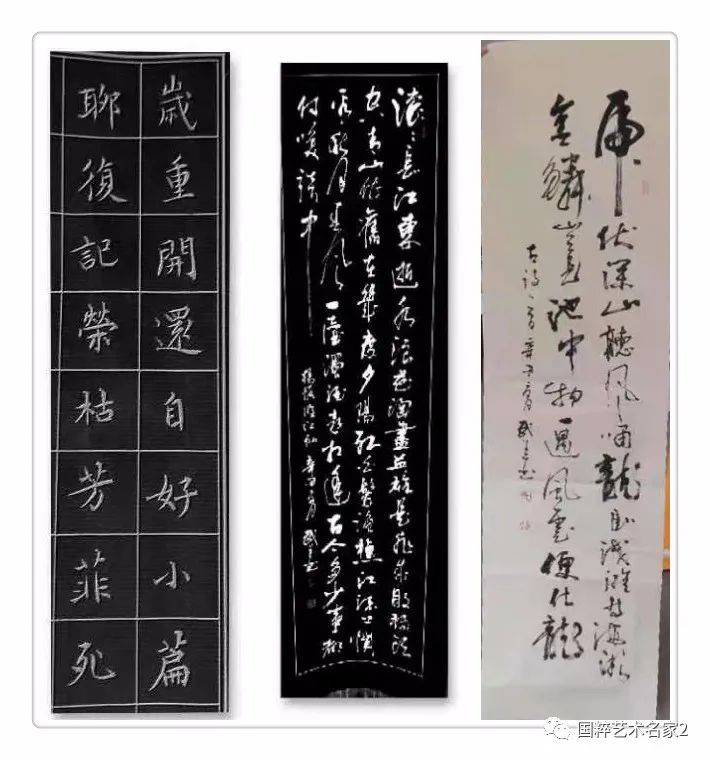 歲重開還自好小篇
聊復記榮枯芳菲死
滚〻長江東逝水浪花淘盡英雄是非成敗轉頭
空青山依舊在幾度夕陽紅白髮漁樵江渚上慣
看秋月春風一壺濁酒喜相逢古今多少事都
付笑談中
楊慎臨江仙
虎伏深山聽風嘯龍卧淺灘等海潮
金鱗豈是池中物一遇風雲便化龍
古詩一首
国粹艺术名家2